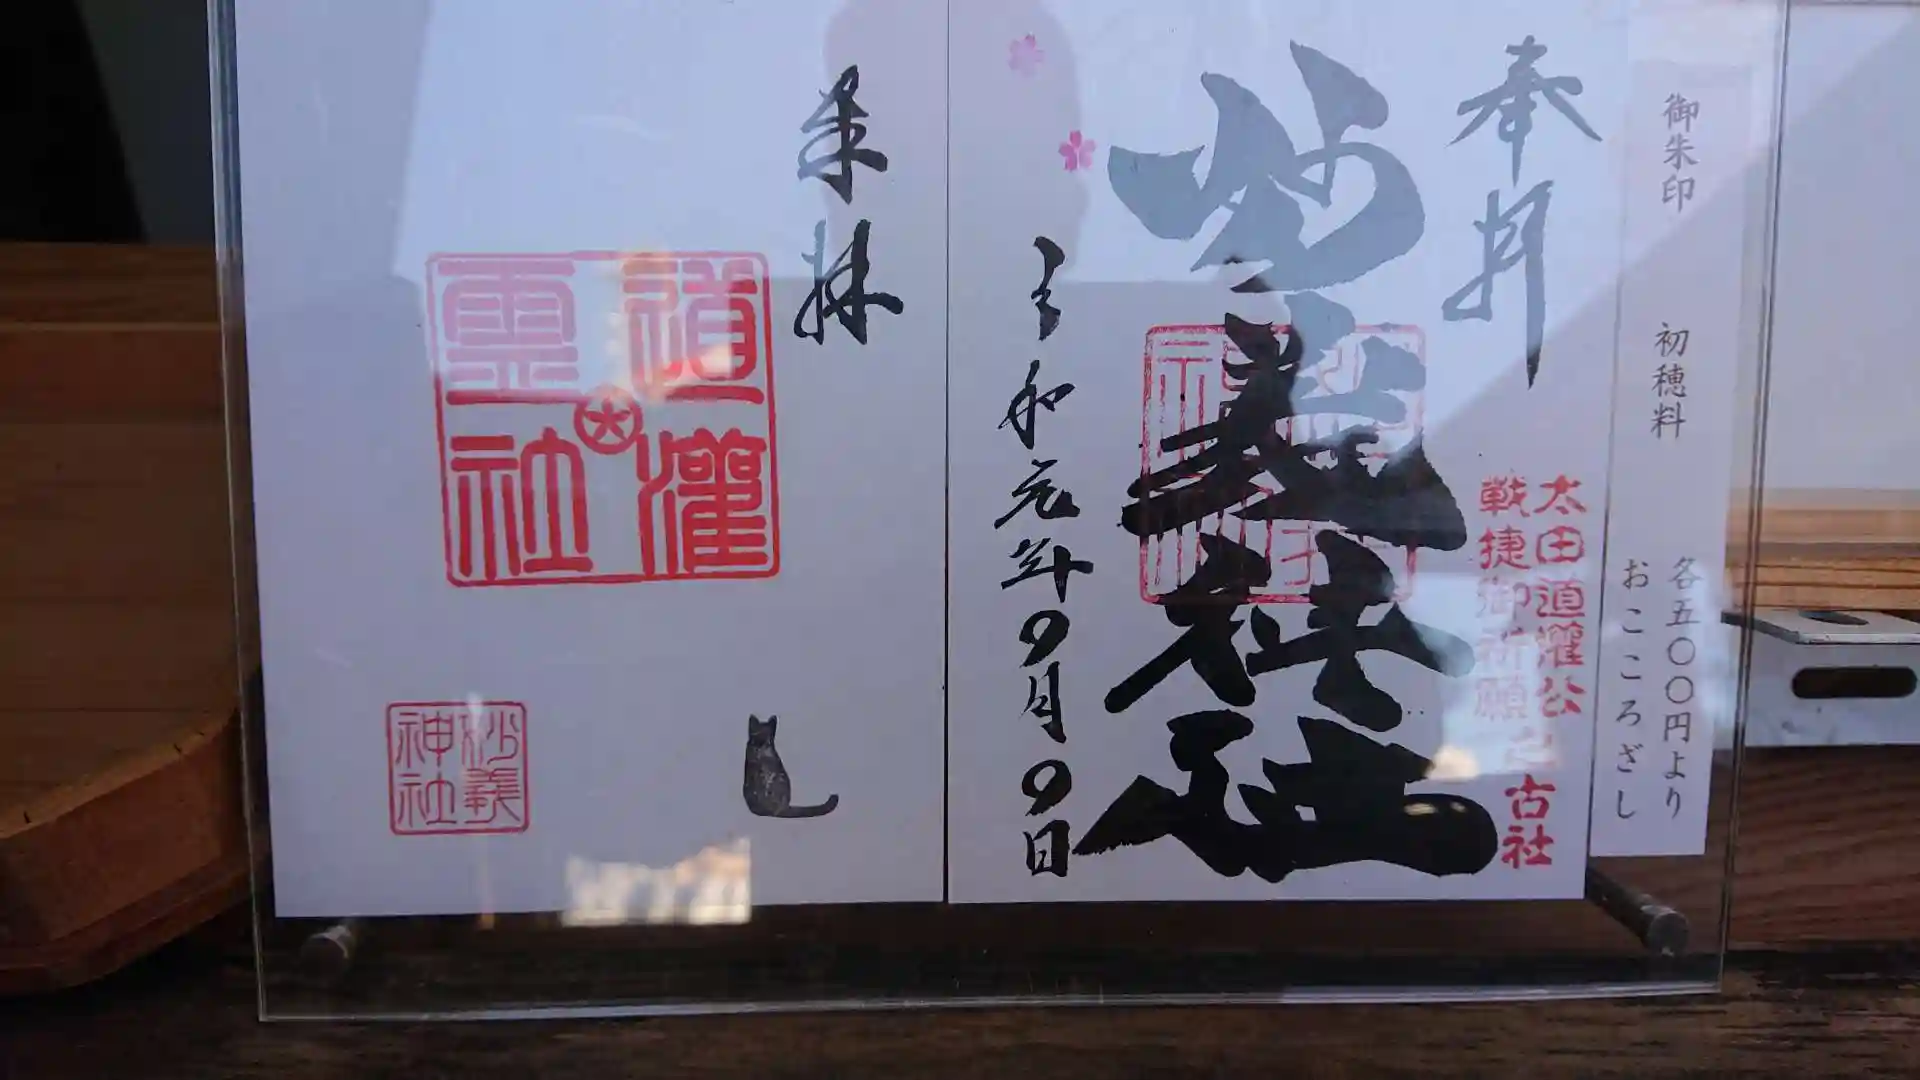 御朱印 初穂料 各五〇〇円より
おこころざし
奉拝
太田道灌公
戦捷御祈願之古社
妙義神社
令和元年9月9日
奉拝
道灌
霊社
妙義
神社